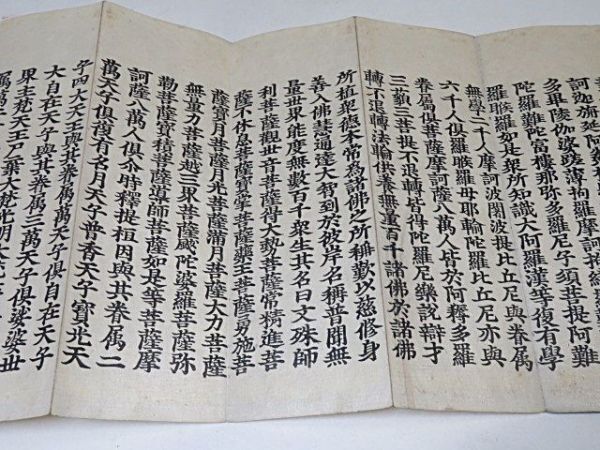 訶迦旃延阿
多畢陵伽婆蹉薄拘羅摩訶拘絺
陀羅難陀富樓那彌多羅尼子須菩提阿難
羅睺羅如是衆所知識大阿羅漢等復有學
無學二千人摩訶波闍波提比丘尼與眷屬
六千人俱羅睺羅母耶輸陀羅比丘尼亦與
眷屬俱菩薩摩訶薩八萬人皆於阿耨多羅
三藐三菩提不退轉皆得陀羅尼樂説辯才
轉不退轉法輪供養無量百千諸佛於諸佛
所植衆德本常為諸佛之所稱歎以慈修身
善入佛慧通達大智到於彼岸名稱普聞無
量世界能度無數百千衆生其名曰文殊師
利菩薩觀世音菩薩得大勢菩薩常精進菩
薩不休息菩薩寶掌菩薩藥王菩薩勇施菩
薩寶月菩薩月光菩薩滿月菩薩大力菩薩
無量力菩薩越三界菩薩颰陀婆羅菩薩彌
勒菩薩寶積菩薩導師菩薩如是等菩薩摩
訶薩八萬人俱尒時釋提桓因與其眷属二
萬天子俱復有名月天子普香天子寶光天
子四大天王與其眷属萬天子俱自在天子
大自在天子與其眷属三萬天子俱娑婆世
界主梵天王尸棄大梵光明大梵